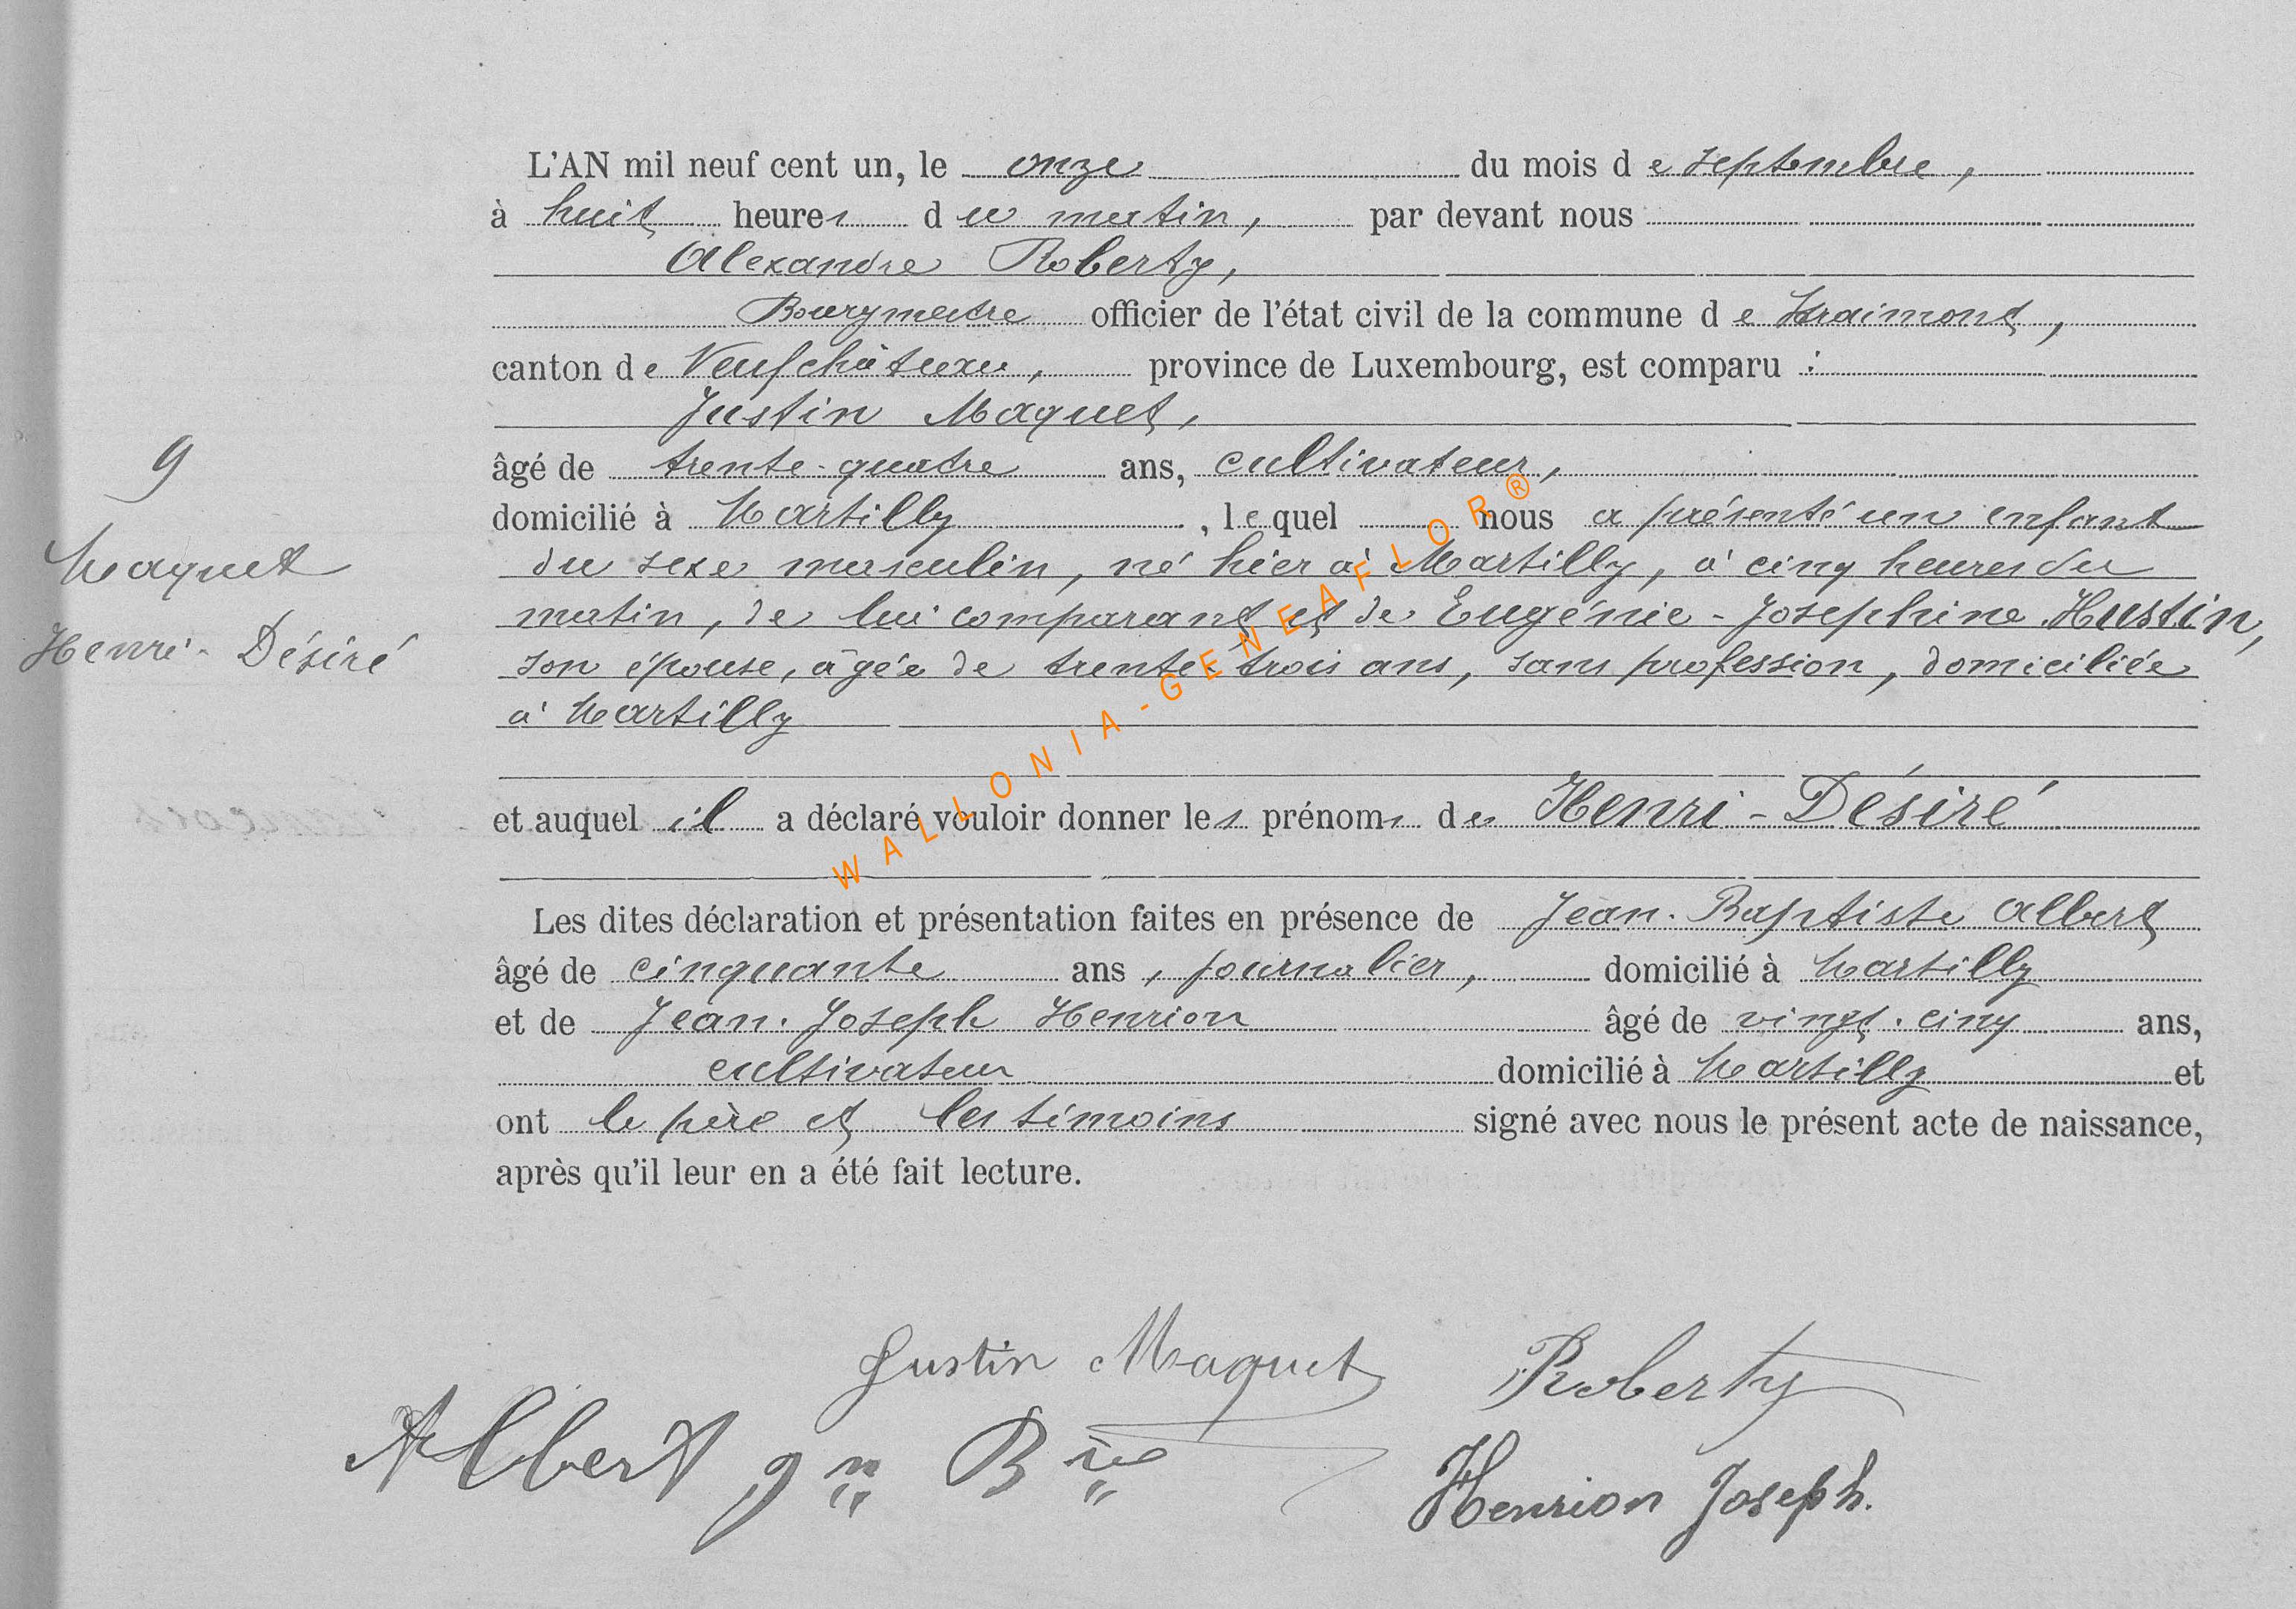 L'AN mil neuf cent un, le onze du mois de septembre,
à huit heures du matin, par devant nous
Alexandre Roberty,
Bourgmestre officier de l'état civil de la commune de Straimont,
canton de Neufchâteau, province de Luxembourg, est comparu :
Justin Maquet,
âgé de trente-quatre ans, cultivateur,
domicilié à Martilly, lequel nous a présenté un enfant
du sexe masculin, né hier à Martilly, à cinq heures du
matin, de lui comparant et de Eugénie-Josephine Hustin,
son épouse, âgée de trente-trois ans, sans profession, domiciliée
à Martilly
et auquel il a déclaré vouloir donner les prénoms de Henri-Désiré
Les dites déclaration et présentation faites en présence de Jean-Baptiste Albert
âgé de cinquante ans, journalier, domicilié à Martilly
et de Jean-Joseph Henrion âgé de vingt-cinq ans,
cultivateur domicilié à Martilly et
ont le père et les témoins signé avec nous le présent acte de naissance,
après qu'il leur en a été fait lecture.
9
Maquet
Henri-Désiré
WALLONIA-GENEAFLOR®
Justin Maquet Roberty
Albert Jn Bte
Henrion Joseph.